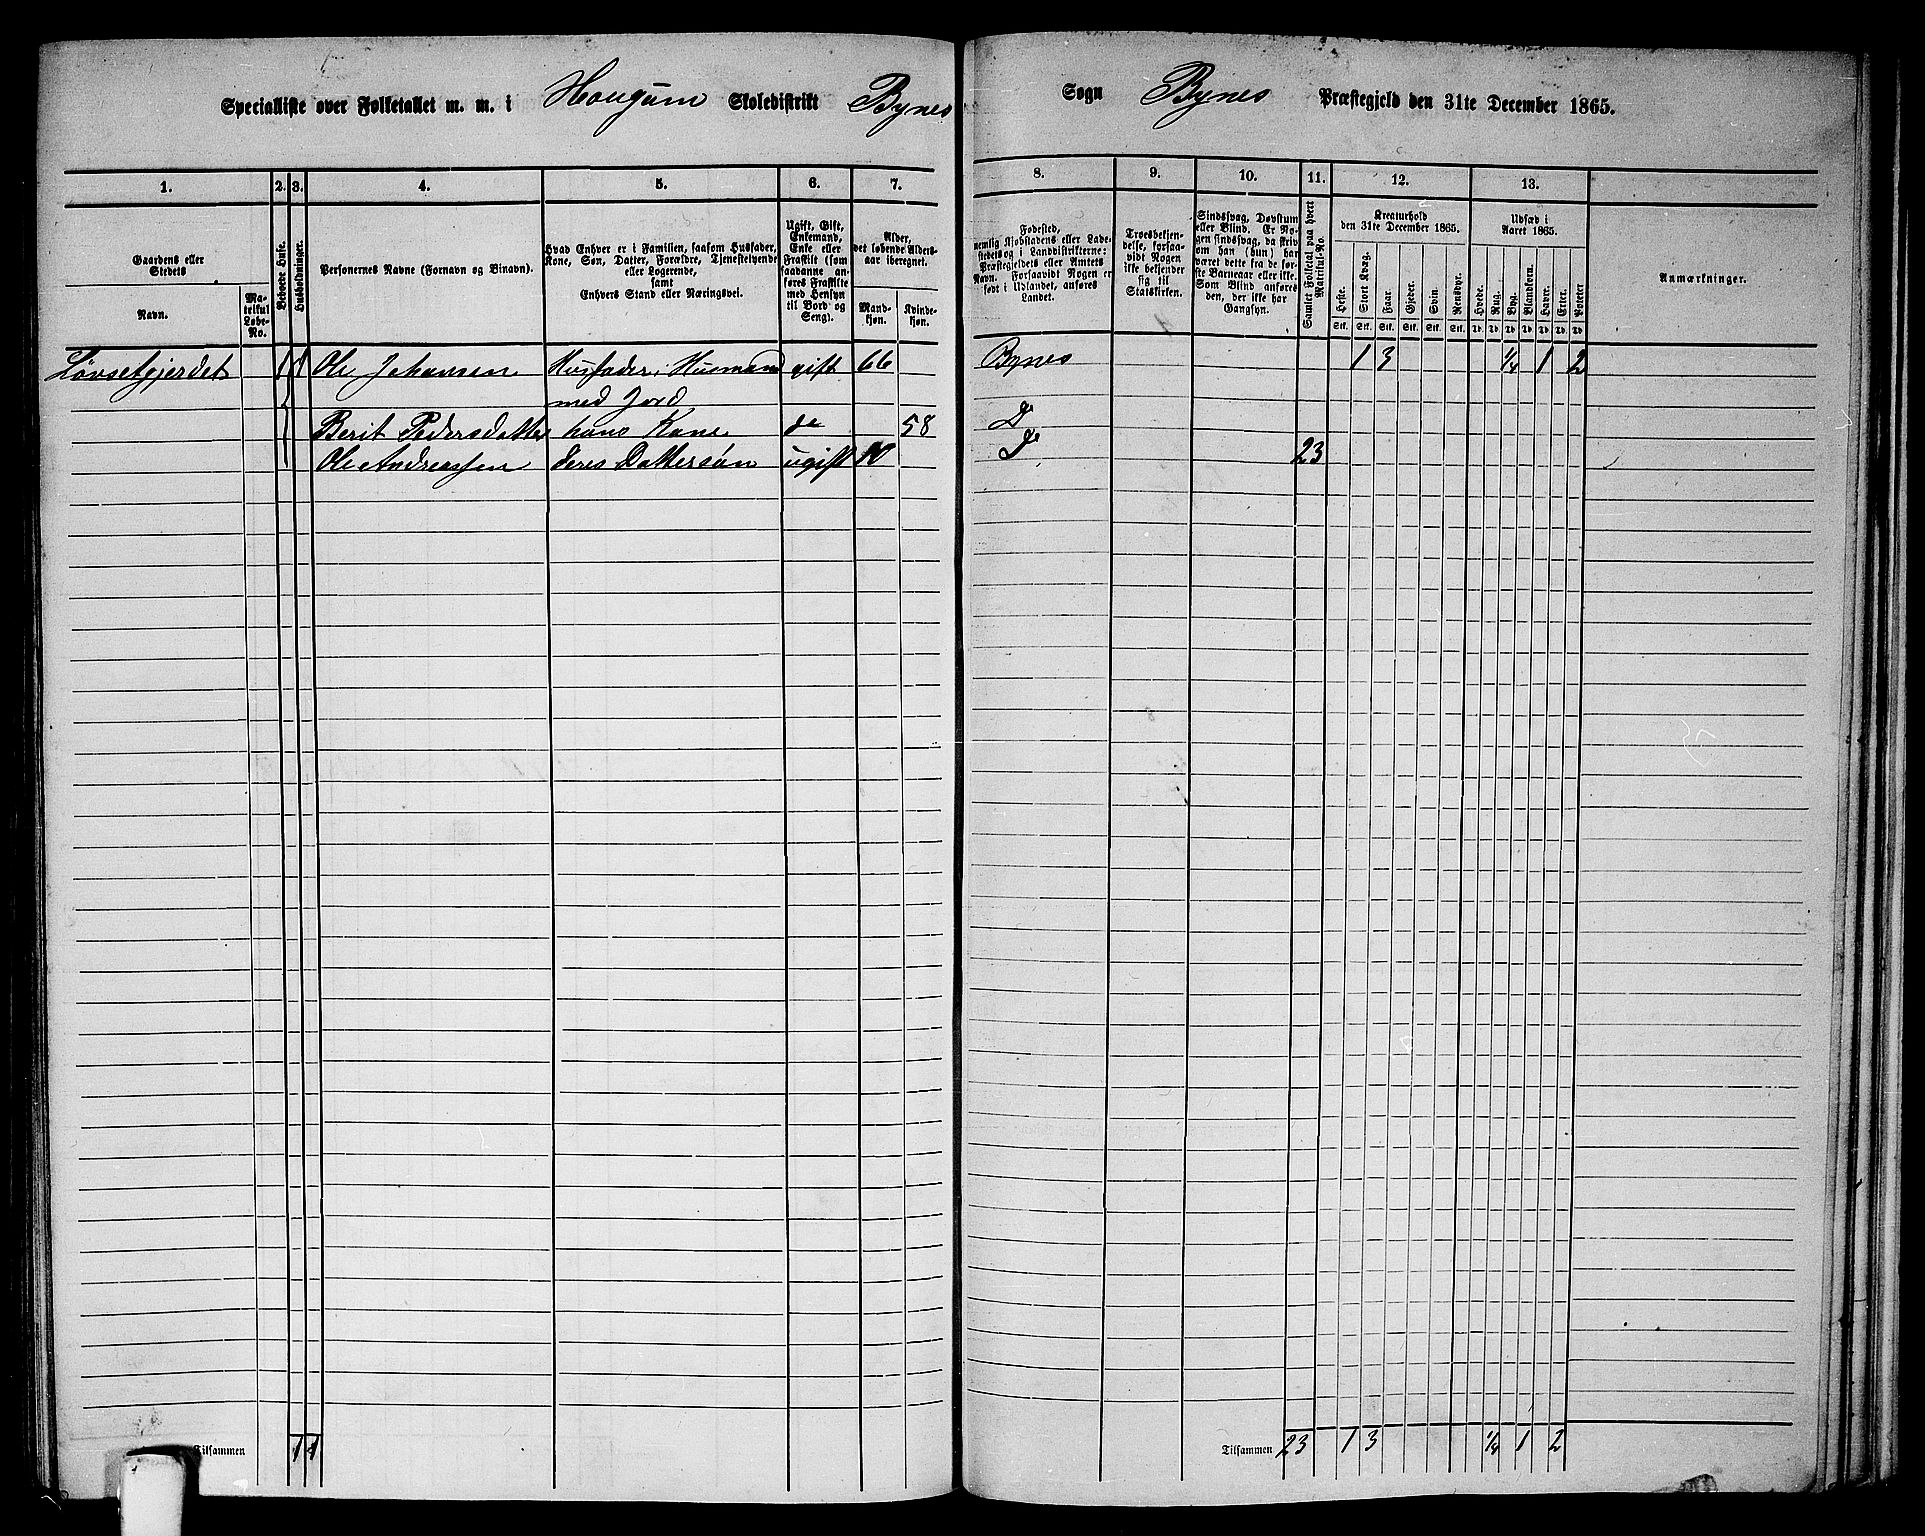 Specialliste over Folketallet m. m. i Hougum Skoledistrikt Bynes Sogn Bynes Præstegjeld den 31te December 1865.
1. 2. 3. 4. 5. 6. 7. 8. 9. 10. 11. 12. 13.
Gaardens eller Stedets
Navn.
Matrikul Løbe-No.
Beboede Huse.
Husholdninger.
Personernes Navne (Fornavn og Binavn).
Hvad Enhver er i Familien, saasom Husfader,
Kone, Søn, Datter, Forældre, Tjenestetyende
eller Logerende,
samt
Enhvers Stand eller Næringsvei.
Ugift, Gift,
Enkemand,
Enke eller
Fraskilt (som
saadanne an-
føres Fraskilte
med Hensyn
til Bord og
Seng).
Alder,
det løbende Alders-
aar iberegnet.
Mand-
kjøn.
Kvinde-
kjøn.
Fødested,
nemlig Kjøbstadens eller Lade-
stedets og i Landdistrikterne:
Præstegjeldets eller Amtets
Navn. Forsaavidt Nogen er
født i Udlandet, anføres
Landet.
Troesbekjen-
delse, forsaa-
vidt Nogen
ikke bekjender
sig til
Statskirken.
Sindssvag, Døvstum
eller Blind. Er No-
gen sindssvag, da skriv
om han (hun) har
været dette fra de før-
ste Barneaar eller ikke.
Som Blind anføres
den, der ikke har
Gangsyn.
Samlet Folketal paa hvert
Matrikul-No.
Kreaturhold
den 31te December 1865.
Heste. Stort Kvæg. Faar. Gjeder. Svin. Rensdyr.
Stk. Stk. Stk. Stk. Stk. Stk.
Udsæd i
Aaret 1865.
Hvede. Rug. Byg. Blandkorn. Havre. Erter. Poteter.
Td. Td. Td. Td. Td. Td. Td.
Anmærkninger.
Løvsetgjerdet 1 1 Ole Johansen Husfader, Husmand gift 66 Bynes 1 3 1/4 1 2
med Jord
Berit Pedersdatter hans Kone do 58 Do
Ole Andreassen deres Dattersøn ugift 10 Do 23
Tilsammen 1 1
Tilsammen 23 1 3 1/4 1 2